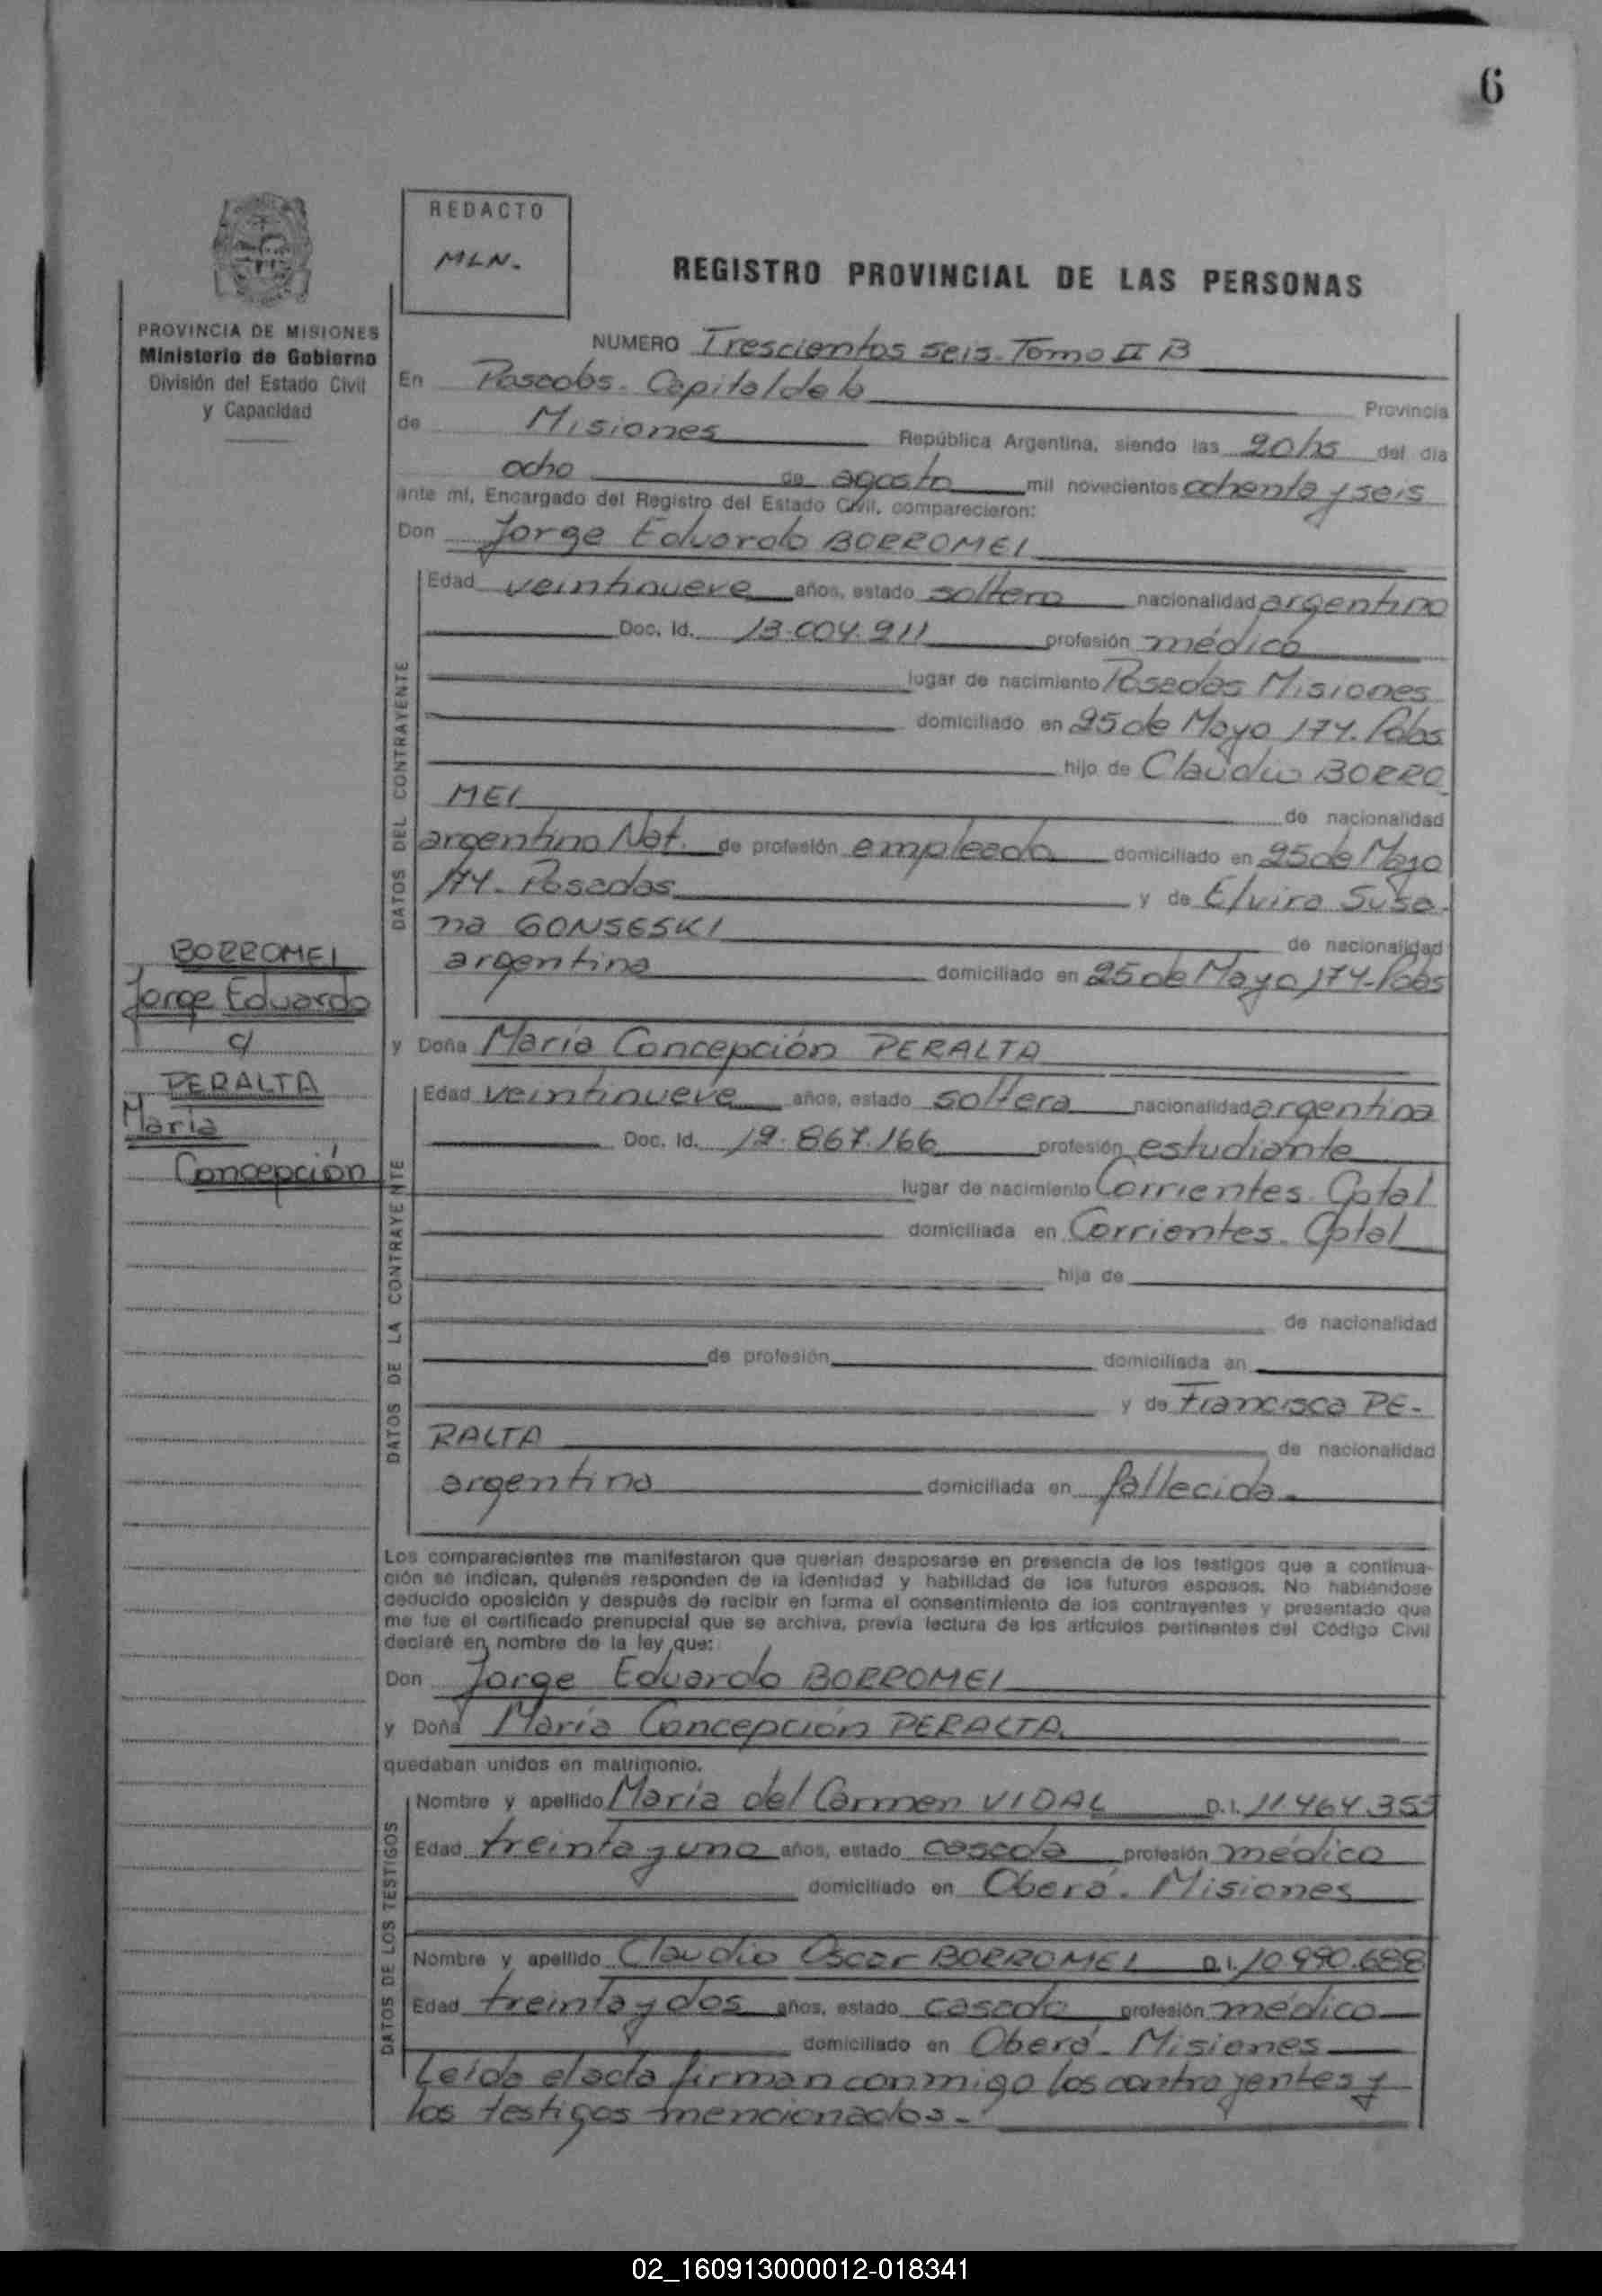 6
REDACTO
MLN.
REGISTRO PROVINCIAL DE LAS PERSONAS
PROVINCIA DE MISIONES
Ministerio de Gobierno
División del Estado Civil
y Capacidad
NUMERO Trescientos seis. Tomo II B
En Posadas. Capital de la Provincia
de Misiones República Argentina, siendo las 20 hs del día
ocho de agosto mil novecientos ochenta y seis
ante mí, Encargado del Registro del Estado Civil, comparecieron:
Don Jorge Eduardo BORROMEI
DATOS DEL CONTRAYENTE
Edad veintinueve años, estado soltero nacionalidad argentino
Doc. Id. 13.004.911 profesión médico
lugar de nacimiento Posadas Misiones
domiciliado en 25 de Mayo 174. Pdas
hijo de Claudio BORRO
MEI de nacionalidad
argentino Nat. de profesión empleado domiciliado en 25 de Mayo
174. Posadas y de Elvira Susa-
na GONSESKI de nacionalidad
argentina domiciliado en 25 de Mayo 174-Pdas
BORROMEI
Jorge Eduardo
c/
PERALTA
María
Concepción
y Doña María Concepción PERALTA
DATOS DE LA CONTRAYENTE
Edad veintinueve años, estado soltera nacionalidad argentina
Doc. Id. 12.867.166 profesión estudiante
lugar de nacimiento Corrientes. Cptal
domiciliada en Corrientes. Cptal
hija de
de nacionalidad
de profesión domiciliada en
y de Francisca PE-
RALTA de nacionalidad
argentina domiciliada en fallecida.
Los comparecientes me manifestaron que querían desposarse en presencia de los testigos que a continua-
ción se indican, quienes responden de la identidad y habilidad de los futuros esposos. No habiéndose
deducido oposición y después de recibir en forma el consentimiento de los contrayentes y presentado que
me fue el certificado prenupcial que se archiva, previa lectura de los artículos pertinentes del Código Civil
declaré en nombre de la ley que:
Don Jorge Eduardo BORROMEI
y Doña María Concepción PERALTA
quedaban unidos en matrimonio.
DATOS DE LOS TESTIGOS
Nombre y apellido María del Carmen VIDAL D.I. 11.464.355
Edad treinta y uno años, estado casada profesión médico
domiciliado en Oberá. Misiones
Nombre y apellido Claudio Oscar BORROMEI D.I. 10.990.688
Edad treinta y dos años, estado casado profesión médico
domiciliado en Oberá. Misiones
Leída el acta firman conmigo los contrayentes y
los testigos mencionados.-
02_160913000012-018341